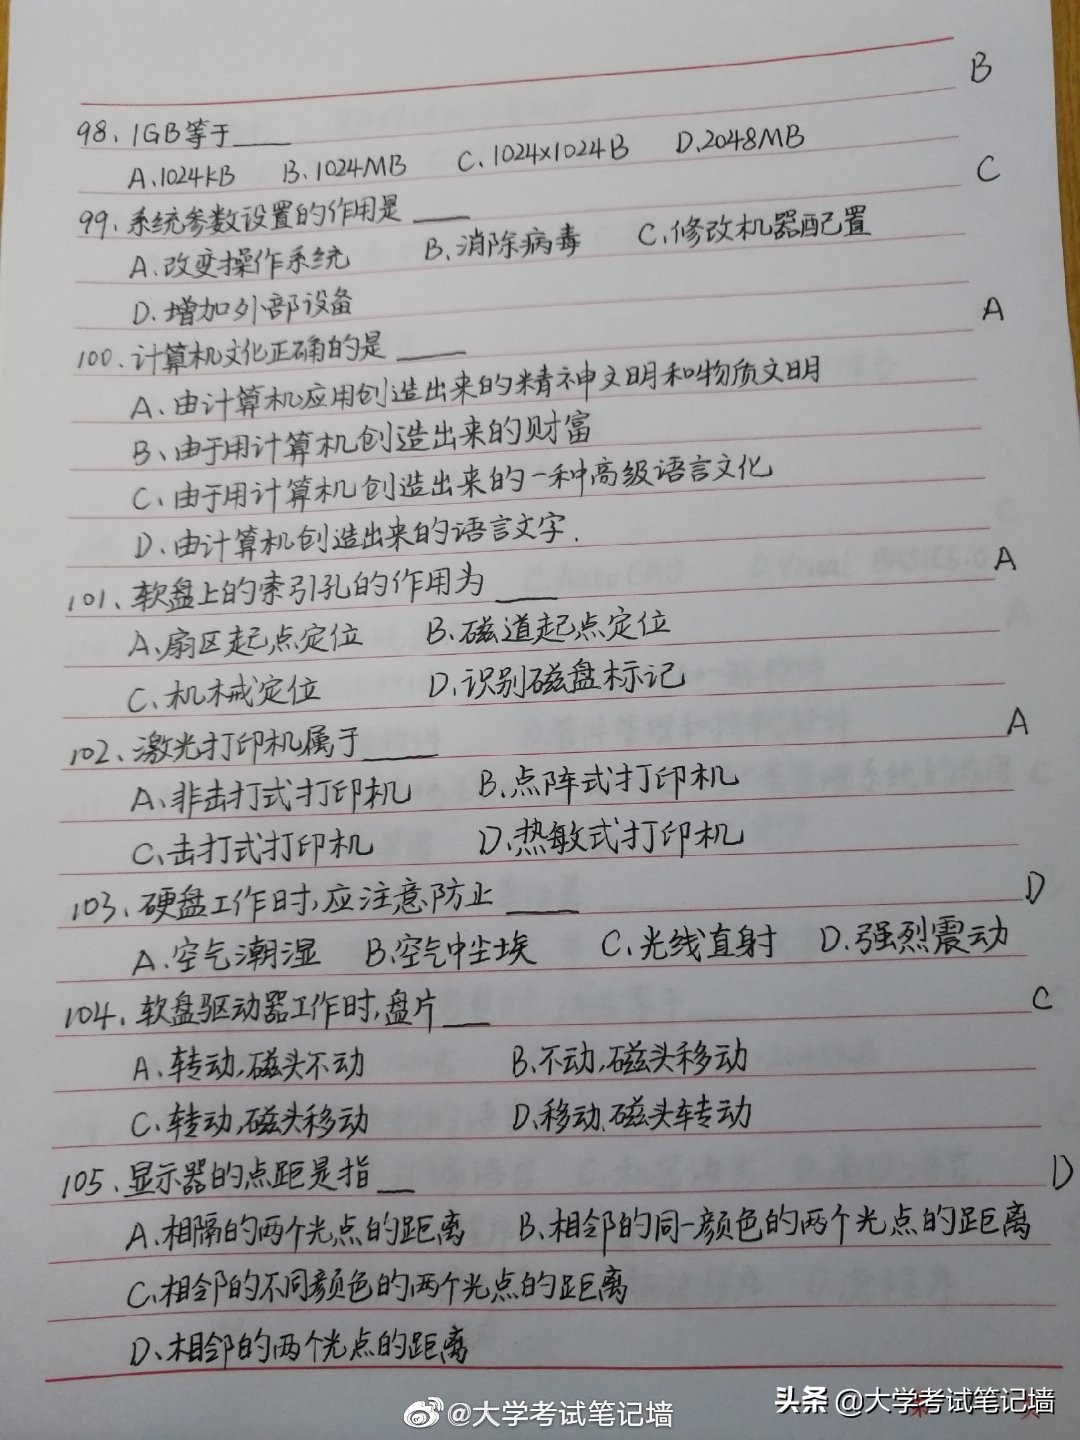 B
98、1GB等于____
A、1024KB B、1024MB C、1024×1024B D、2048MB
C
99、系统参数设置的作用是____
A、改变操作系统 B、消除病毒 C、修改机器配置
D、增加外部设备
A
100、计算机文化正确的是____
A、由计算机应用创造出来的精神文明和物质文明
B、由于用计算机创造出来的财富
C、由于用计算机创造出来的一种高级语言文化
D、由计算机创造出来的语言文字.
101、软盘上的索引孔的作用为____ A
A、扇区起点定位 B、磁道起点定位
C、机械定位 D、识别磁盘标记
102、激光打印机属于____ A
A、非击打式打印机 B、点阵式打印机
C、击打式打印机 D、热敏式打印机
103、硬盘工作时,应注意防止____ D
A、空气潮湿 B、空气中尘埃 C、光线直射 D、强烈震动
104、软盘驱动器工作时,盘片____ C
A、转动,磁头不动 B、不动,磁头移动
C、转动,磁头移动 D、移动、磁头转动
105、显示器的点距是指____ D
A、相隔的两个光点的距离 B、相邻的同一颜色的两个光点的距离
C、相邻的不同颜色的两个光点的距离
D、相邻的两个光点的距离
@大学考试笔记墙
头条 @大学考试笔记墙